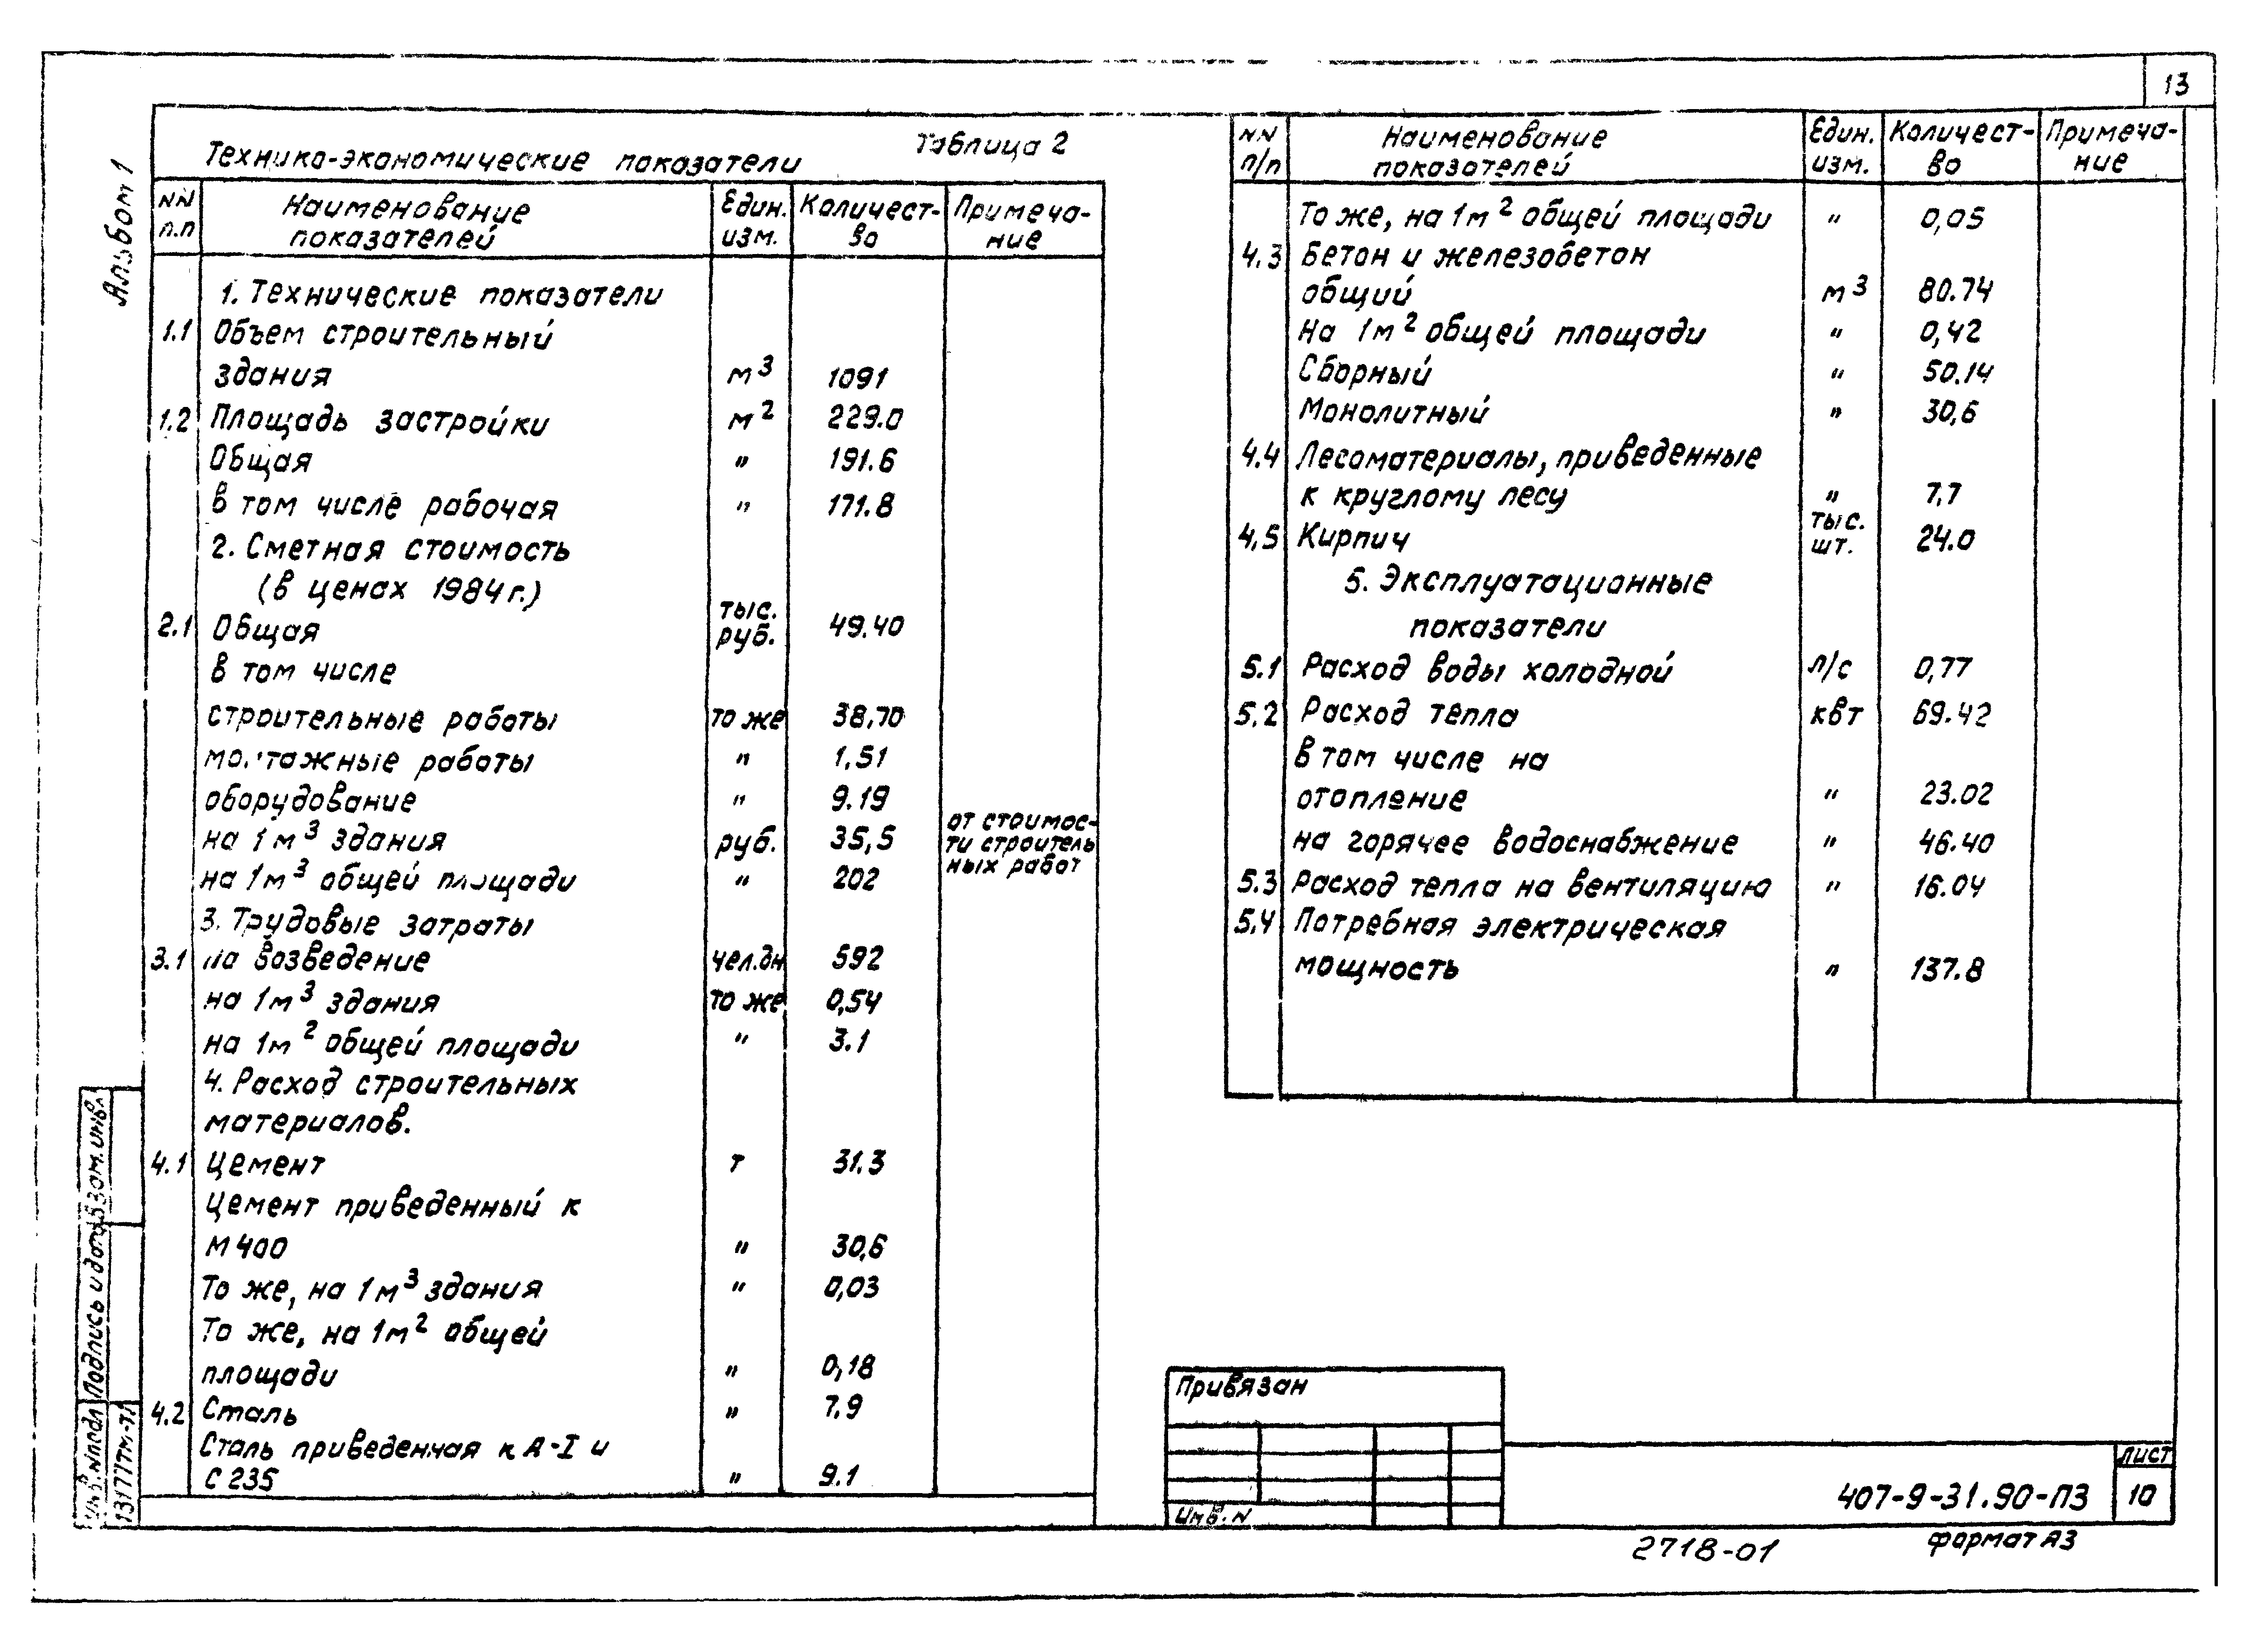 13
Альбом 1
Таблица 2
Технико-экономические показатели
NN п.п Наименование показателей Един. изм. Количест-во Примеча-ние
1. Технические показатели
1.1 Объем строительный
здания м3 1091
1.2 Площадь застройки м2 229.0
Общая " 191.6
в том числе рабочая " 171.8
2. Сметная стоимость
(в ценах 1984 г.)
2.1 Общая тыс. руб. 49.40
в том числе
строительные работы то же 38,70
монтажные работы " 1.51
оборудование " 9.19
на 1 м3 здания руб. 35,5 от стоимос-
ти строитель
ных работ
на 1м3 общей площади " 202
3. Трудовые затраты
3.1 на возведение чел.дн 592
на 1м3 здания то же 0,54
на 1м2 общей площади " 3.1
4. Расход строительных
материалов.
4.1 Цемент т 31.3
Цемент приведенный к
М400 " 30,6
То же, на 1м3 здания " 0,03
То же, на 1м2 общей
площади " 0,18
4.2 Сталь " 7.9
Сталь приведенная к А-I и
С 235 " 9.1
NN п/п Наименование показателей Един. изм. Количест-во Примеча-ние
То же, на 1м2 общей площади " 0,05
4.3 Бетон и железобетон
общий м3 80.74
На 1м2 общей площади " 0,42
Сборный " 50.14
Монолитный " 30,6
4.4 Лесоматериалы, приведенные
к круглому лесу " 7,7
4.5 Кирпич тыс. шт. 24.0
5. Эксплуатационные
показатели
5.1 Расход воды холодной л/с 0,77
5.2 Расход тепла квт 69.42
в том числе на
отопление " 23.02
на горячее водоснабжение " 46.40
5.3 Расход тепла на вентиляцию " 16.04
5.4 Потребная электрическая
мощность " 137.8
Привязан
Инв. N
407-9-31.90-ПЗ
Лист
10
2718-01
формат А3
Инв. N подл
13177тм-т1
Подпись и дата
Взам. инв.